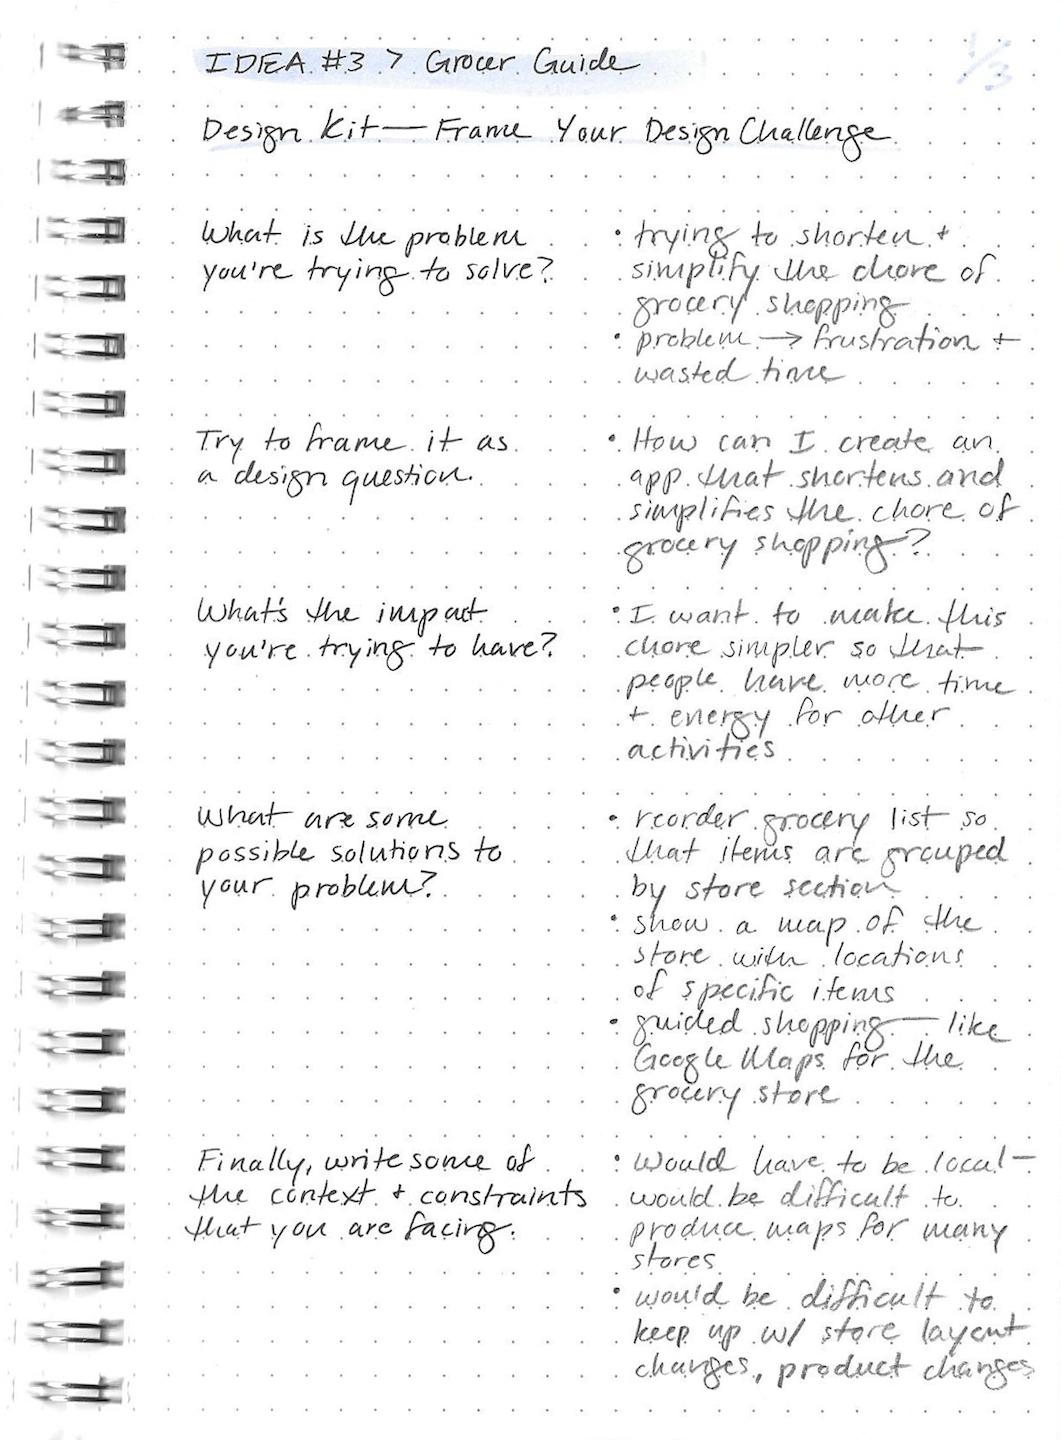 IDEA #3 > Grocer Guide
1/3
Design Kit — Frame Your Design Challenge
What is the problem
you're trying to solve?
• trying to shorten +
simplify the chore of
grocery shopping
• problem → frustration +
wasted time
Try to frame it as
a design question.
• How can I create an
app that shortens and
simplifies the chore of
grocery shopping?
What's the impact
you're trying to have?
• I want to make this
chore simpler so that
people have more time
+ energy for other
activities
What are some
possible solutions to
your problem?
• reorder grocery list so
that items are grouped
by store section
• show a map of the
store with locations
of specific items
• guided shopping — like
Google Maps for the
grocery store
Finally, write some of
the context + constraints
that you are facing.
• would have to be local —
would be difficult to
produce maps for many
stores
• would be difficult to
keep up w/ store layout
changes, product changes